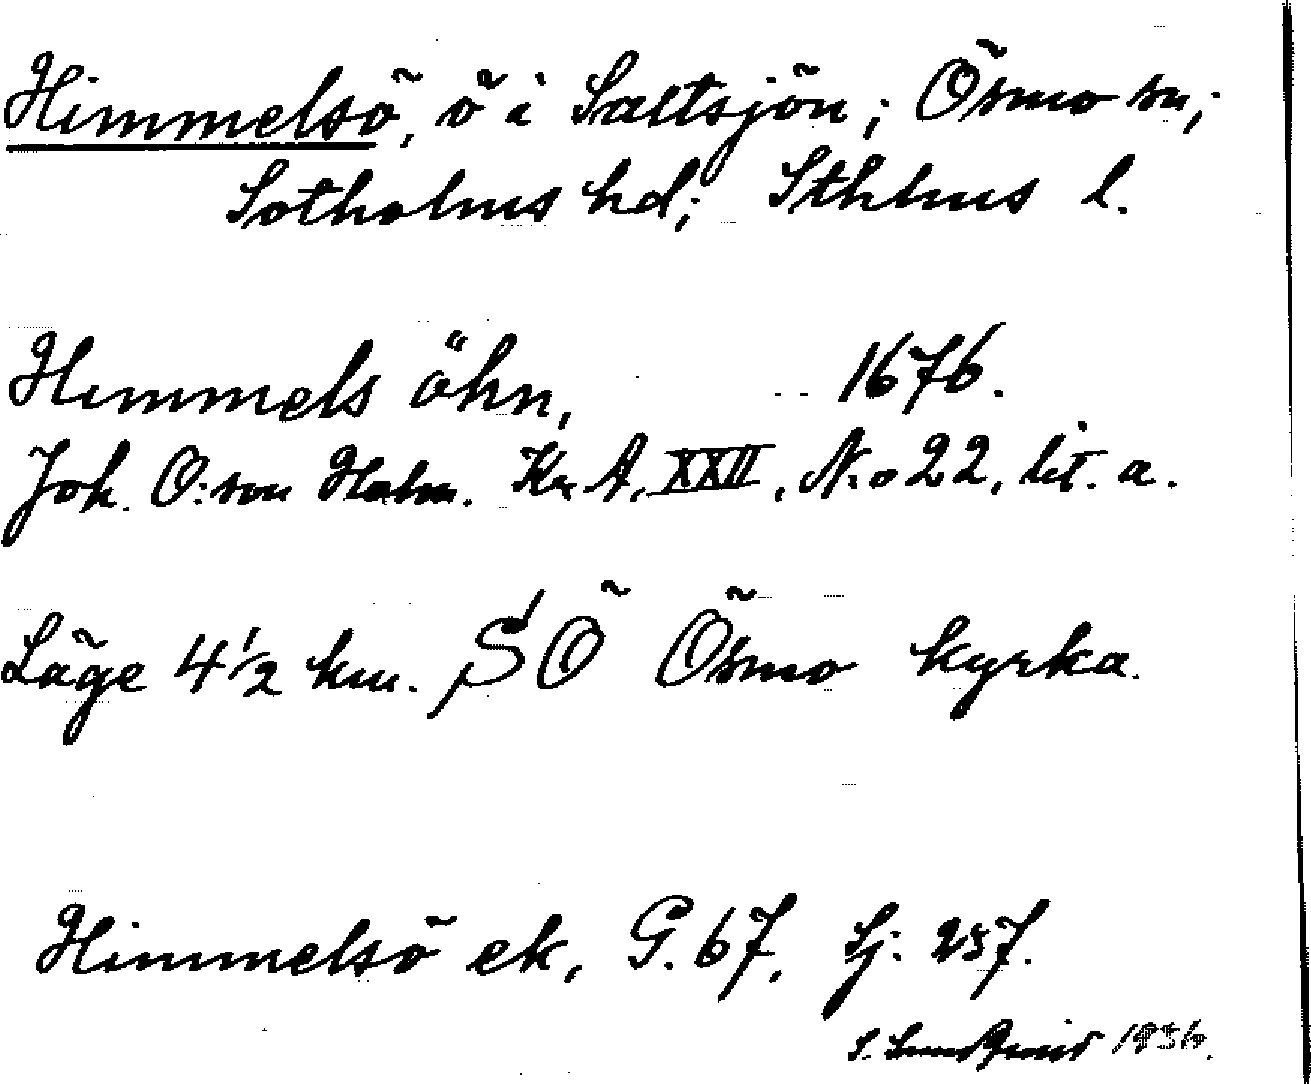 Himmelsö, ö i Saltsjön; Ösmo sn;
Sotholms hd; Sthlms l.
Himmels öhn, 1676.
Joh. O:son Holm. Kr A, XXII, No 22, lit. a.
Läge 4 1/2 km. SÖ Ösmo kyrka.
Himmelsö ek, G. 67, Sj: 257.
S. Lundqvist 1936.